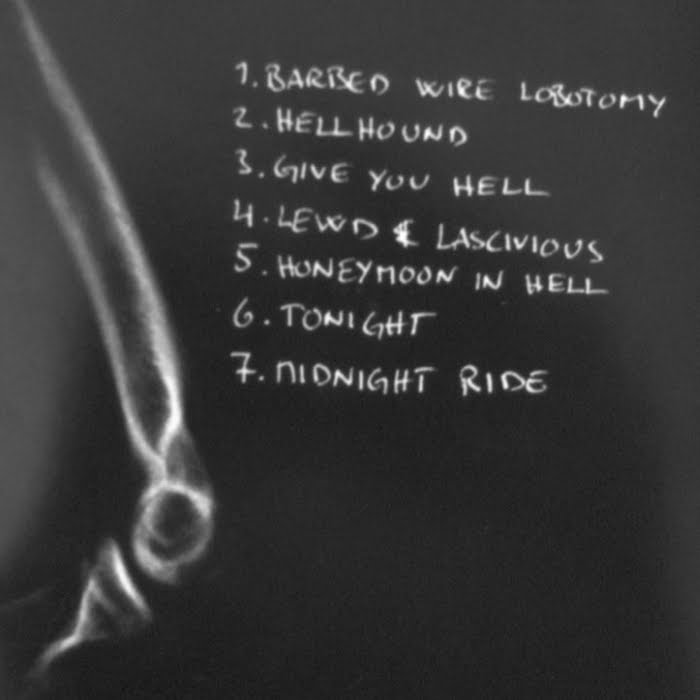 1. BARBED WIRE LOBOTOMY
2. HELLHOUND
3. GIVE YOU HELL
4. LEWD & LASCIVIOUS
5. HONEYMOON IN HELL
6. TONIGHT
7. MIDNIGHT RIDE